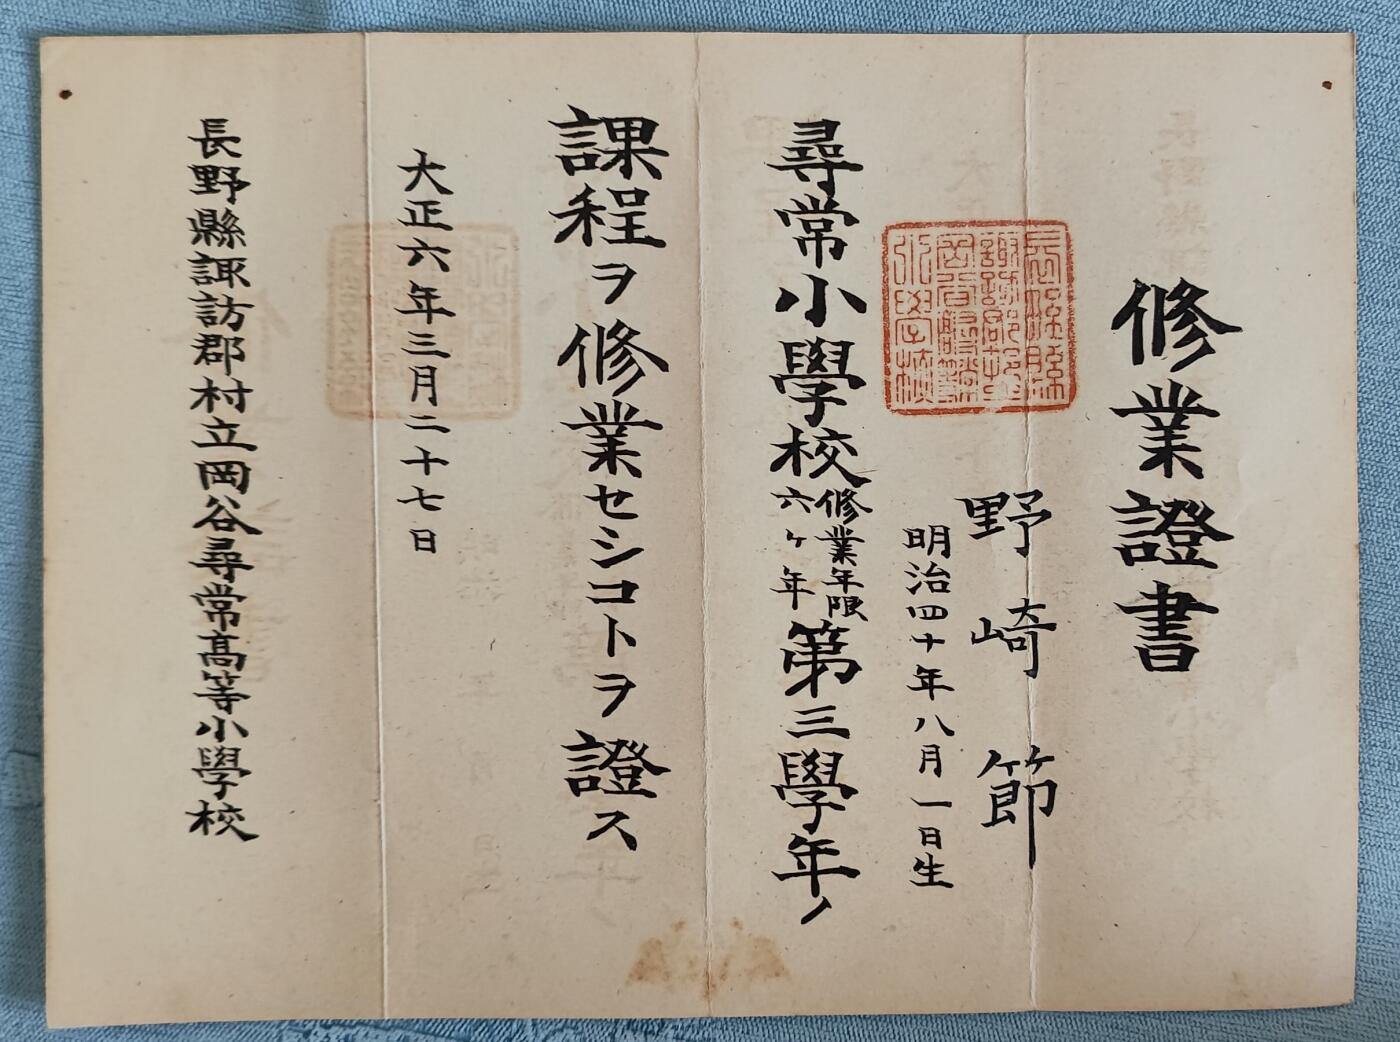 修業證書
野崎節
明治四十年八月一日生
尋常小學校修業年限六ヶ年第三學年ノ
課程ヲ修業セシコトヲ證ス
大正六年三月二十七日
長野縣諏訪郡村立岡谷尋常高等小學校